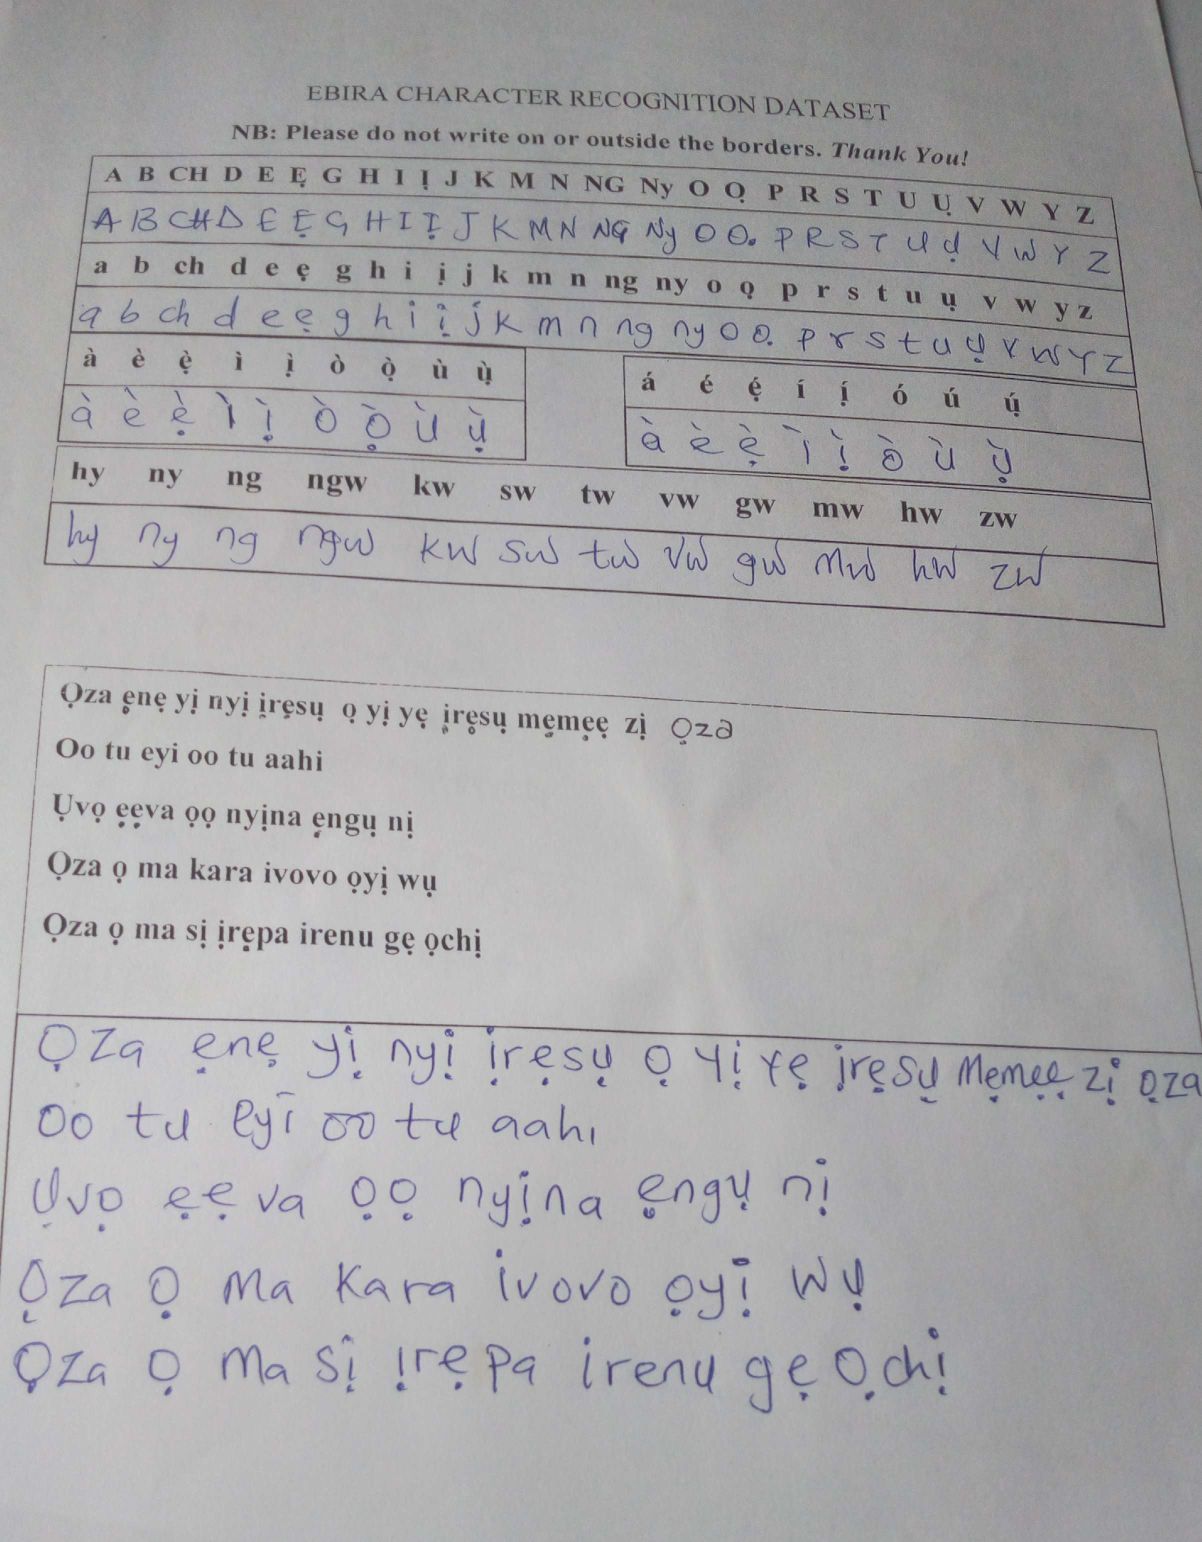 EBIRA CHARACTER RECOGNITION DATASET
NB: Please do not write on or outside the borders. Thank You!
A B CH D E Ẹ G H I Ị J K M N NG Ny O Ọ P R S T U Ụ V W Y Z
A B CH D E Ẹ G H I Ị J K M N NG Ny O Ọ. P R S T U Ụ V W Y Z
a b ch d e ẹ g h i ị j k m n ng ny o ọ p r s t u ụ v w y z
a b ch d e ẹ g h i ị j k m n ng ny o o. p r s t u ụ v w y z
à è ẹ̀ ì ị̀ ò ọ̀ ù ụ̀
à è ẹ̀ ì ị̀ ò ọ̀ ù ụ̀
á é ẹ́ í ị́ ó ú ụ́
à è ẹ̀ ì ị̀ ò ù ụ̀
hy ny ng ngw kw sw tw vw gw mw hw zw
hy ny ng ngw kw sw tw vw gw mw hw zw
Ọza ẹnẹ yị nyị ịrẹsụ ọ yị yẹ ịrẹsụ mẹmẹẹ zị Ọza
Oo tu eyi oo tu aahi
Ụvọ ẹẹva ọọ nyịna ẹngụ nị
Ọza ọ ma kara ivovo ọyị wụ
Ọza ọ ma sị ịrẹpa irenu gẹ ọchị
Ọza ẹnẹ yị nyị ịrẹsụ ọ yị yẹ ịrẹsụ mẹmẹẹ zị ọza
Oo tu eyi oo tu aahi
Ụvọ ẹẹva ọọ nyịna ẹngụ nị
Ọza Ọ ma kara ivovo ọyị wụ
Ọza Ọ ma sị ịrẹpa irenu gẹ Ọchị